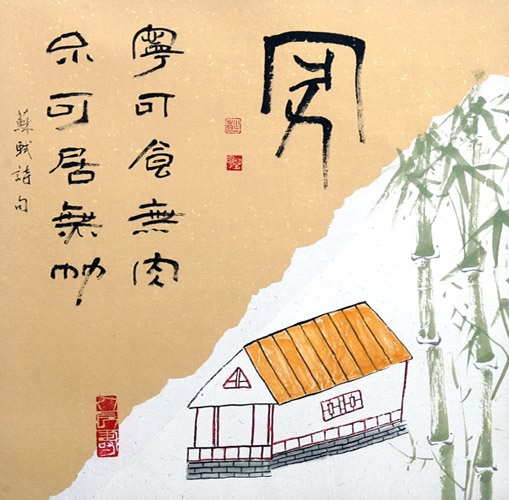 寧可食無肉
不可居無竹
蘇軾詩句